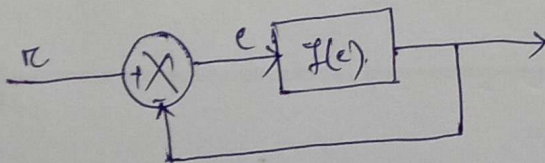 r
+
e
f(e).
-